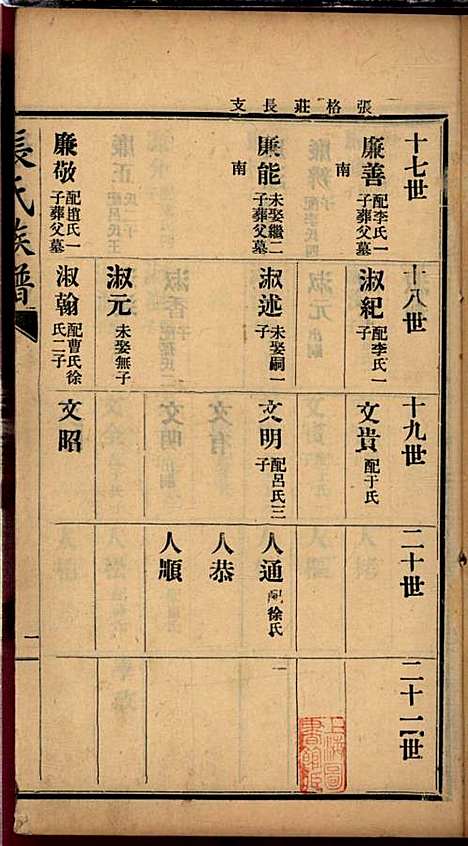 張格莊長支
十七世
廉善 配李氏一子葬父墓南
廉能 未娶繼二子葬父墓南
廉敬 配趙氏一子葬父墓
十八世
淑紀 配李氏一子
淑述 未娶嗣一子
淑元 未娶無子
淑翰 配曹氏徐氏二子
十九世
文貴 配于氏
文明 配呂氏三子
文昭
二十世
人通 配徐氏
人恭
人順
二十一世
張氏族譜
一
上海圖書館藏